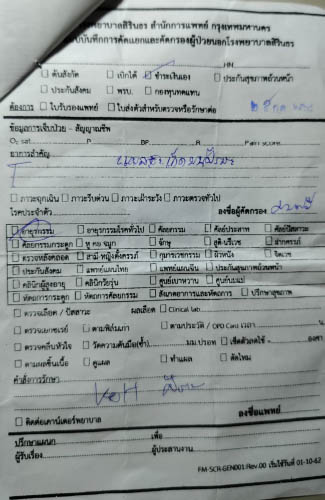 โรงพยาบาลสิรินธร สำนักการแพทย์ กรุงเทพมหานคร
แบบบันทึกการคัดแยกและคัดกรองผู้ป่วยนอกโรงพยาบาลสิรินธร
HN
☐ ต้นสังกัด ☐ เบิกได้ ☑ ชำระเงินเอง ☐ ประกันสุขภาพถ้วนหน้า
☐ ประกันสังคม ☐ พรบ. ☐ กองทุนทดแทน
ต้องการ ☐ ใบรับรองแพทย์ ☐ ใบส่งตัวสำหรับตรวจหรือรักษาต่อ
ข้อมูลการเจ็บป่วย - สัญญาณชีพ
O₂ sat P BP R Pain score
อาการสำคัญ
☐ ภาวะฉุกเฉิน ☐ ภาวะรีบด่วน ☐ ภาวะเฝ้าระวัง ☐ ภาวะตรวจทั่วไป
โรคประจำตัว ลงชื่อผู้คัดกรอง
☐ อายุรกรรม ☐ อายุรกรรมโรคทั่วไป ☐ ศัลยกรรม ☐ ศัลย์ประสาท ☐ ศัลย์ปัสสาวะ
☐ ศัลยกรรมกระดูก ☐ หู คอ จมูก ☐ จักษุ ☐ สูติ-นรีเวช ☐
☐ ตรวจหลังคลอด ☐ ☐ กุมารเวชกรรม ☐ ผิวหนัง ☐ จิตเวช
☐ ประกันสังคม ☐ แพทย์แผนไทย ☐ แพทย์แผนจีน ☐ ประกันสุขภาพถ้วนหน้า
☐ คลินิกผู้สูงอายุ ☐ คลินิกวัยรุ่น ☐ ศูนย์เบาหวาน ☐ ศูนย์นมแม่
☐ หัตถการกระดูก ☐ หัตถการศัลยกรรม ☐ สังเกตอาการและหัตถการ ☐ ปรึกษาสุขภาพ
☐ ตรวจเลือด / ปัสสาวะ ผลเลือด ☐ Clinical lab
☐ ตรวจเอกซเรย์ ☐ ตามฟิล์มเก่า ☐ ตามประวัติ / OPD Card เวลา
☐ ตรวจคลื่นหัวใจ ☐ วัดความดันมือ(ซ้ำ) มม.ปรอท ☐ เช็ดตัวลดไข้
☐ ตามผลชิ้นเนื้อ ☐ ดูแผล ☐ ทำแผล ☐ ตัดไหม
คำสั่งการรักษา
ลงชื่อแพทย์
☐ ติดต่อเคาน์เตอร์พยาบาล
ปรึกษาแผนก เพื่อ
ผู้รับเรื่อง ผู้ประสานงาน
FM-SCR-GEN001/Rev.00 เริ่มใช้วันที่ 01-10-62